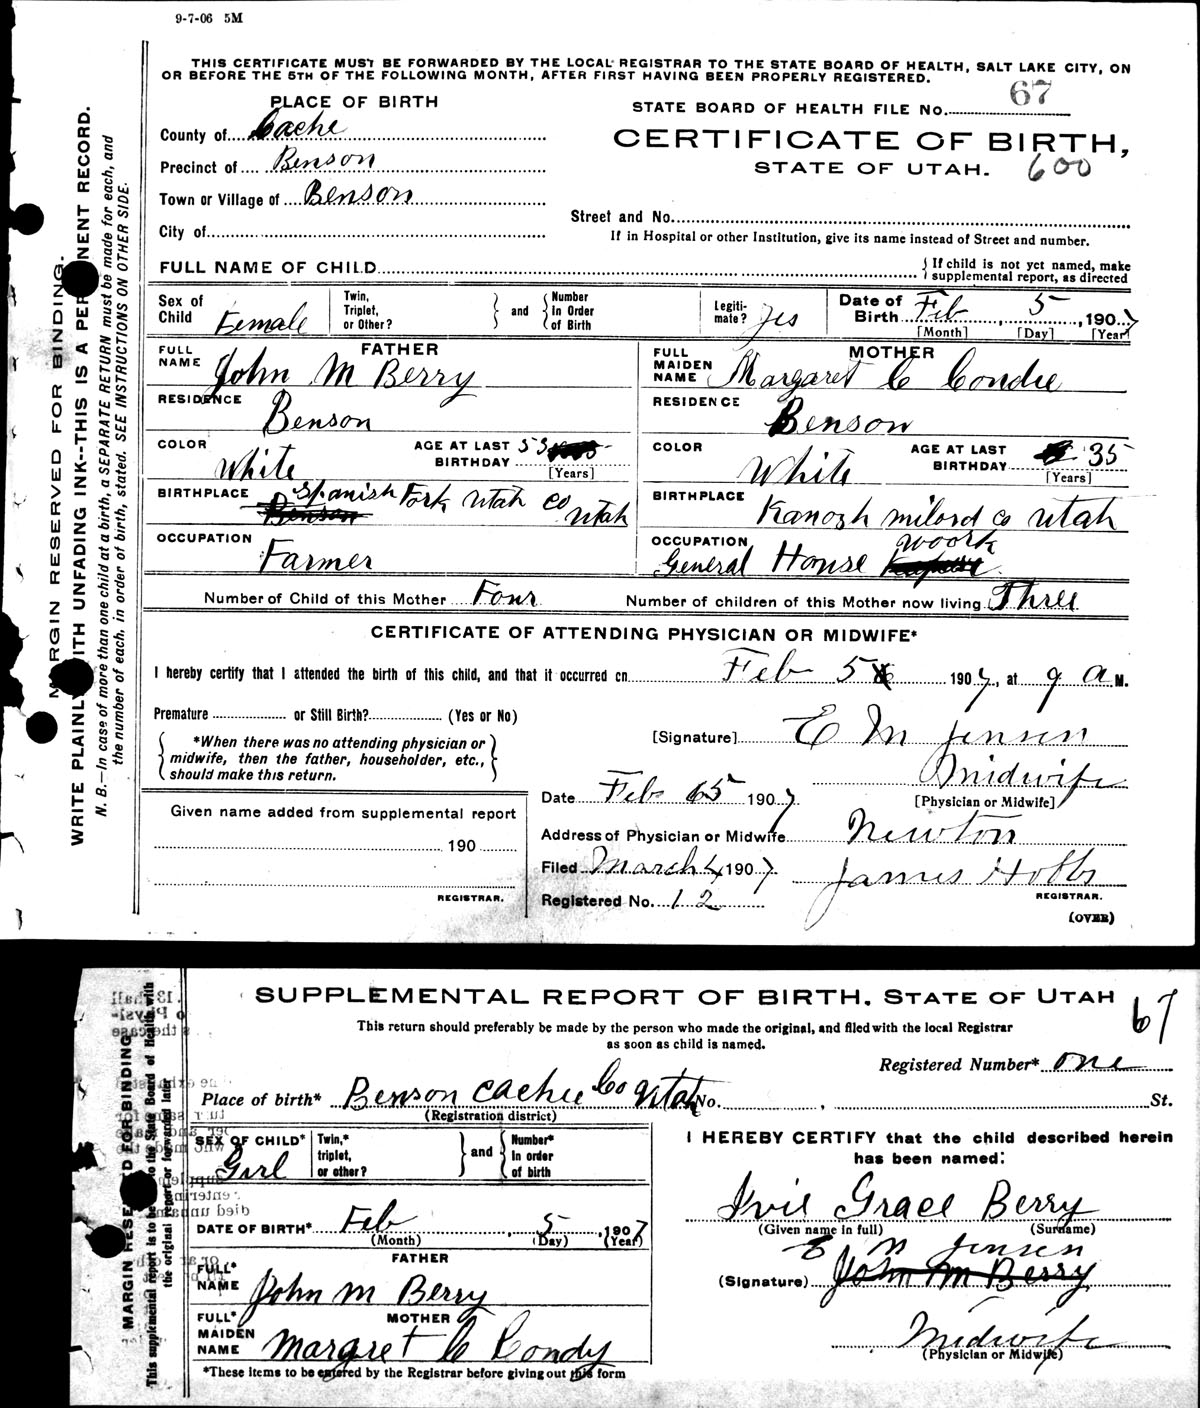 9-7-06 5M
THIS CERTIFICATE MUST BE FORWARDED BY THE LOCAL REGISTRAR TO THE STATE BOARD OF HEALTH, SALT LAKE CITY, ON
OR BEFORE THE 5TH OF THE FOLLOWING MONTH, AFTER FIRST HAVING BEEN PROPERLY REGISTERED.
PLACE OF BIRTH
STATE BOARD OF HEALTH FILE No. 67
County of Cache
CERTIFICATE OF BIRTH,
Precinct of Benson
STATE OF UTAH. 600
Town or Village of Benson
Street and No.
City of
If in Hospital or other Institution, give its name instead of Street and number.
FULL NAME OF CHILD
If child is not yet named, make
supplemental report, as directed
Sex of Child Female
Twin, Triplet, or Other?
and
Number In Order of Birth
Legitimate? Yes
Date of Birth Feb 5, 1907
[Month] [Day] [Year]
FATHER
FULL NAME John M Berry
MOTHER
FULL MAIDEN NAME Margaret C Condie
RESIDENCE
Benson
RESIDENCE
Benson
COLOR White
AGE AT LAST BIRTHDAY 53
[Years]
COLOR White
AGE AT LAST BIRTHDAY 35
[Years]
BIRTHPLACE Spanish Fork Utah Co Utah
Benson
BIRTHPLACE
Kanosh milord co Utah
OCCUPATION
Farmer
OCCUPATION
General House woork
Number of Child of this Mother Four
Number of children of this Mother now living Three
CERTIFICATE OF ATTENDING PHYSICIAN OR MIDWIFE*
I hereby certify that I attended the birth of this child, and that it occurred on Feb 5 1907, at 9 a M.
Premature or Still Birth? (Yes or No)
*When there was no attending physician or
midwife, then the father, householder, etc.,
should make this return.
[Signature] E M Jensen
Midwife
[Physician or Midwife]
Date Feb 5 1907
Given name added from supplemental report
190
REGISTRAR.
Address of Physician or Midwife Newton
Filed March 4, 1907
James Hobbs
REGISTRAR.
Registered No. 12
(OVER)
MARGIN RESERVED FOR BINDING.
WRITE PLAINLY WITH UNFADING INK--THIS IS A PERMANENT RECORD.
N. B.—In case of more than one child at a birth, a SEPARATE RETURN must be made for each, and
the number of each, in order of birth, stated. SEE INSTRUCTIONS ON OTHER SIDE.
SUPPLEMENTAL REPORT OF BIRTH. STATE OF UTAH
67
This return should preferably be made by the person who made the original, and filed with the local Registrar
as soon as child is named.
Registered Number* one
Place of birth* Benson Cache Co Utah No. , St.
(Registration district)
SEX OF CHILD*
Girl
Twin,* triplet, or other?
and
Number* In order of birth
DATE OF BIRTH* Feb 5, 1907
(Month) (Day) (Year)
FATHER
FULL* NAME John M Berry
MOTHER
FULL* MAIDEN NAME Margret C Condy
*These items to be entered by the Registrar before giving out this form
I HEREBY CERTIFY that the child described herein
has been named:
Ivie Grace Berry
(Given name in full) (Surname)
E M Jensen
(Signature) John M Berry
Midwife
(Physician or Midwife)
MARGIN RESERVED FOR BINDING
This supplemental report is to be to the State Board of Health with
the original report or forwarded later